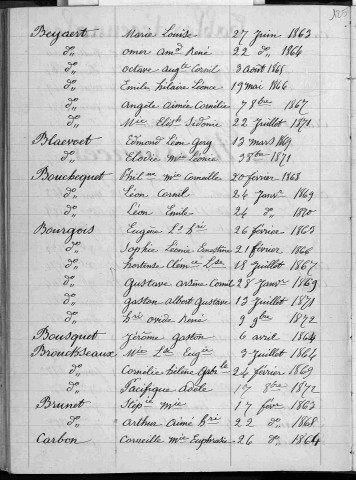 125
Beyaert Marie Louise 27 Juin 1863
d° omer am^d René 22 d° 1864
d° octave aug^te Cornil 3 août 1865
d° Emile hilaire Léonce 19 mai 1866
d° Angèle aimée Cornélie 7 8bre 1867
d° M^ie Elis^th Sidonie 22 Juillet 1871
Blaevoet Edmond Léon Gery 13 mars 1869
d° Elodie M^ie Léonie 3 8bre 1871
Boucbequet Phil^ne m^ie Corneille 20 février 1868
d° Léon Cornil 24 Janv^r 1869
d° Léon Emile 24 d° 1870
Bourgois Eugène L^s h^ri 26 février 1863
d° Sophie Léonie Ernestine 21 février 1866
d° hortense Clém^ce L^se 18 Juillet 1867
d° Gustave arsène Cornil 28 Janv^r 1869
d° gaston albert gustave 13 Juillet 1871
d° h^ri ovide René 9 9bre 1872
Bousquet Jérôme gaston 6 avril 1864
Brouckseaux M^ie L^se Eug^ie 3 Juillet 1864
d° Cornélie hélène 24 février 1869
d° Pacifique adèle 17 8bre 1872
Brunet Stép^ie m^ie 17 févr 1863
d° arthur aimé h^ri 22 d° 1868
Carbon Corneille m^ie Euphrasie 26 d° 1864